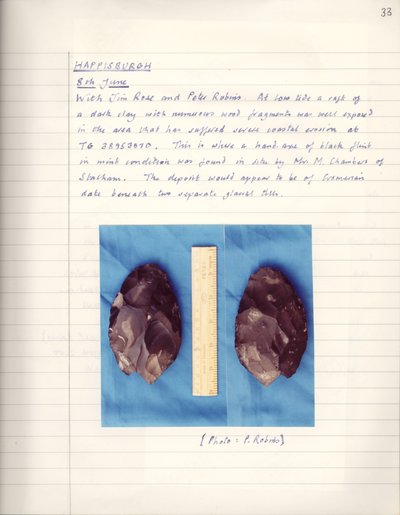 33
HAPPISBURGH
8th June
With Jim Rose and Peter Robins. At low tide a raft of
a dark clay with numerous wood fragments was well exposed
in the area that has suffered severe coastal erosion at
TG 38953070. This is where a hand-axe of black flint
in mint condition was found in situ by Mr. M. Chambers of
Stalham. The deposit would appear to be of Cromerian
date beneath two separate glacial tills.
[Photo: P. Robins]